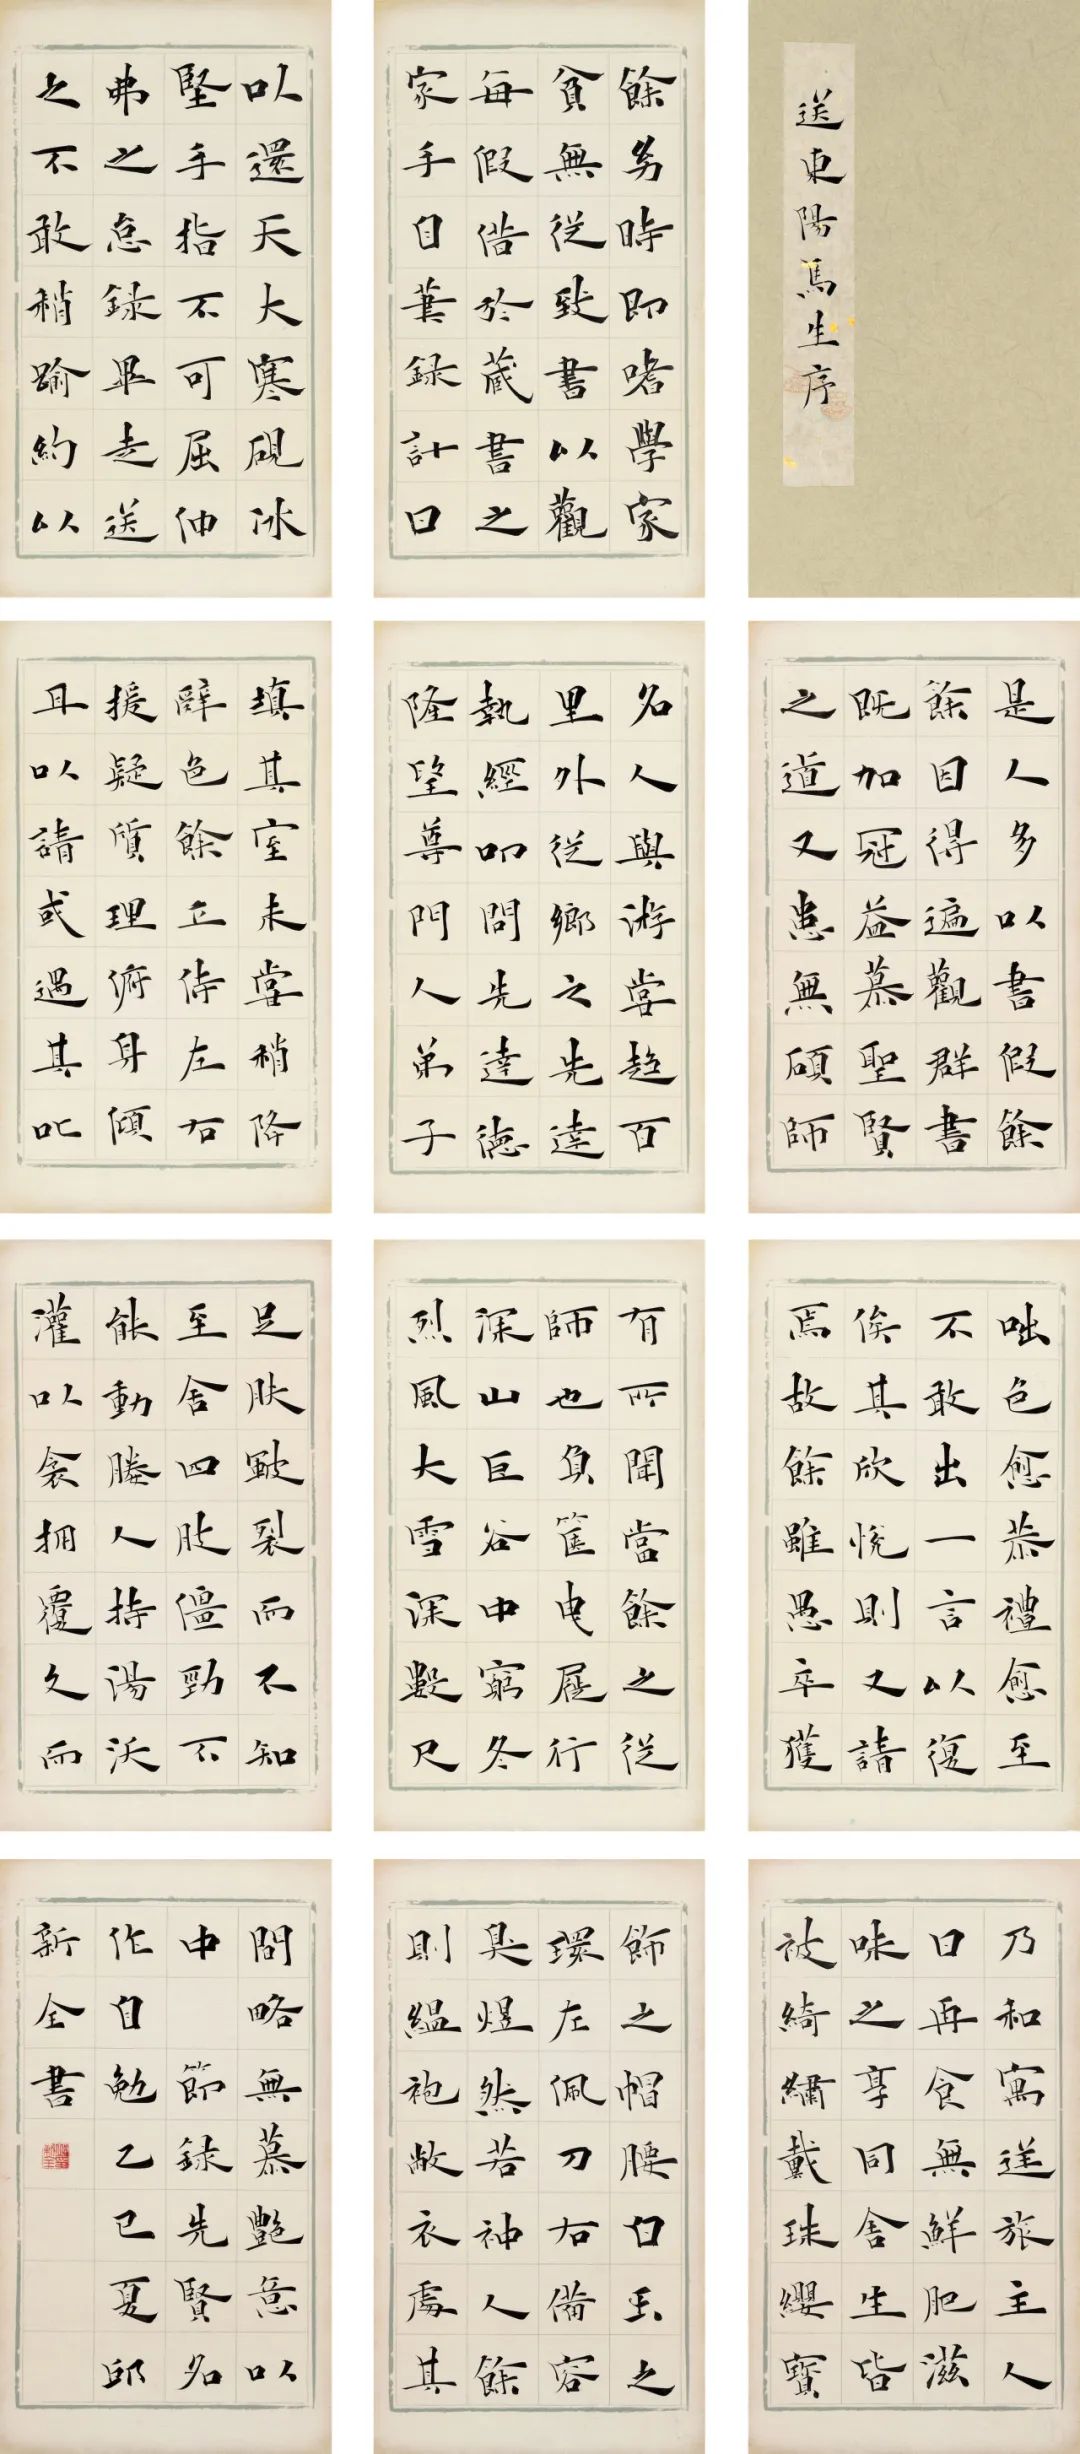 送東陽馬生序
餘幼時即嗜學家
貧無從致書以觀
每假借於藏書之
家手自筆録計日
以還天大寒硯冰
堅手指不可屈伸
弗之怠録畢走送
之不敢稍踰約以
是人多以書假餘
餘因得遍觀群書
既加冠益慕聖賢
之道又患無碩師
名人與游嘗趨百
里外從鄉之先達
執經叩問先達德
隆望尊門人弟子
填其室未嘗稍降
辭色餘立侍左右
援疑質理俯身傾
耳以請或遇其叱
咄色愈恭禮愈至
不敢出一言以復
俟其欣悅則又請
焉故餘雖愚卒獲
有所聞當餘之從
師也負篋曳屣行
深山巨谷中窮冬
烈風大雪深數尺
足肤皸裂而不知
至舍四肢僵勁不
能動媵人持湯沃
灌以衾擁覆久而
乃和寓逆旅主人
日再食無鮮肥滋
味之享同舍生皆
被綺繡戴珠纓寶
飾之帽腰白玉之
環左佩刀右備容
臭煜然若神人餘
則縕袍敝衣處其
間略無慕艷意以
中 節録先賢名
作自勉乙巳夏邱
新全書